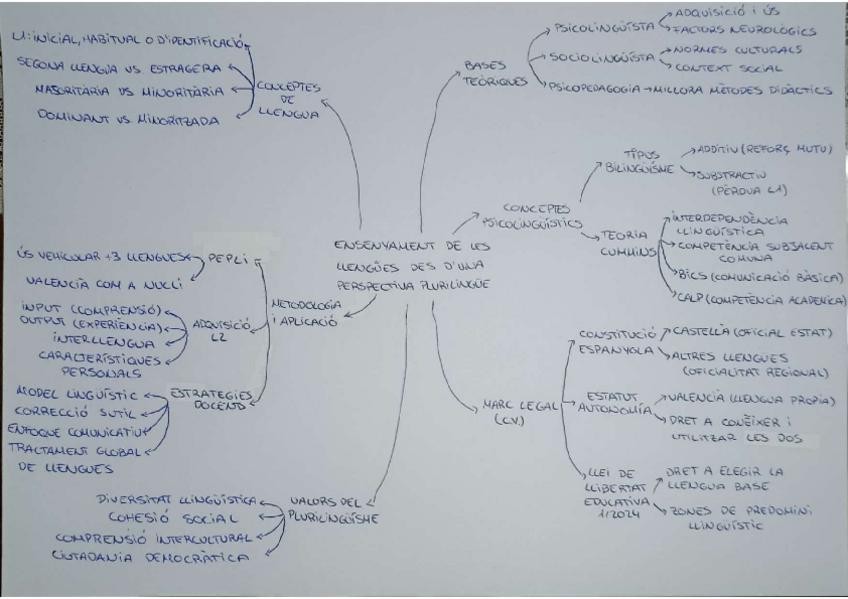 ENSENYAMENT DE LES
LLENGÜES DES D'UNA
PERSPECTIVA PLURILINGÜE
CONCEPTES
DE
LLENGUA
L1: INICIAL, HABITUAL O D'IDENTIFICACIÓ
SEGONA LLENGUA VS ESTRAGERA
MAJORITÀRIA VS MINORITÀRIA
DOMINANT VS MINORITZADA
BASES
TEÒRIQUES
PSICOLINGÜÍSTA
ADQUISICIÓ I ÚS
FACTORS NEUROLÒGICS
SOCIOLINGÜÍSTA
NORMES CULTURALS
CONTEXT SOCIAL
PSICOPEDAGOGIA → MILLORA MÈTODES DIDÀCTICS
CONCEPTES
PSICOLINGÜÍSTICS
TIPUS
BILINGÜISME
ADDITIU (REFORÇ MUTU)
SUBSTRACTIU
(PÈRDUA L1)
TEORIA
CUMMINS
INTERDEPENDÈNCIA
LLINGÜÍSTICA
COMPETÈNCIA SUBJACENT
COMUNA
BICS (COMUNICACIÓ BÀSICA)
CALP (COMPETÈNCIA ACADEMICA)
MARC LEGAL
(C.V.)
CONSTITUCIÓ
ESPANYOLA
CASTELLÀ (OFICIAL ESTAT)
ALTRES LLENGUES
(OFICIALITAT REGIONAL)
ESTATUT
AUTONOMÍA
VALENCIÀ (LLENGUA PROPIA)
DRET A CONÈIXER I
UTILITZAR LES DOS
LLEI DE
LLIBERTAT
EDUCATIVA
1/2024
DRET A ELEGIR LA
LLENGUA BASE
ZONES DE PREDOMINI
LLINGÜÍSTIC
METODOLOGIA
I APLICACIÓ
PEPLI
ÚS VEHICULAR +3 LLENGUES
VALENCIÀ COM A NUCLI
ADQUISICIÓ
L2
INPUT (COMPRENSIÓ)
OUTPUT (EXPERIÈNCIA)
INTERLLENGUA
CARACTERÍSTIQUES
PERSONALS
ESTRATEGIES
DOCENTS
MODEL LINGÜÍSTIC
CORRECCIÓ SUTIL
ENFOQUE COMUNICATIU
TRACTAMENT GLOBAL
DE LLENGUES
VALORS DEL
PLURILINGÜISME
DIVERSITAT LLINGÜÍSTICA
COHESIÓ SOCIAL
COMPRENSIÓ INTERCULTURAL
CIUTADANIA DEMOCRÀTICA